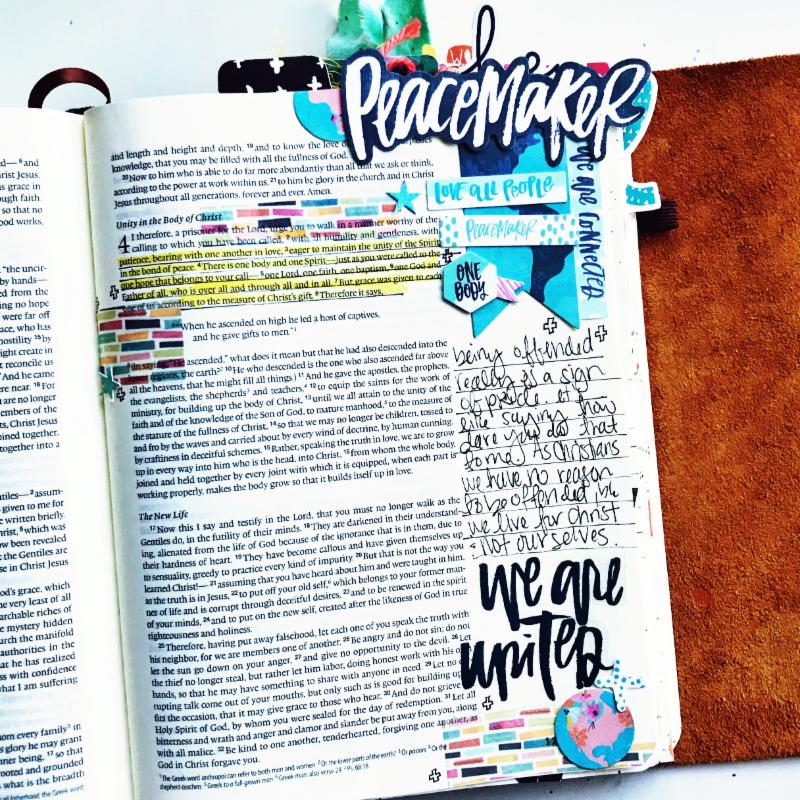 d— ⁶and
rist Jesus.
us grace in
ough faith.
so that no
ood works,
"the uncir-
by hands—
ed from the
ing no hope
were far off
ace, who has
hostility ¹⁵by
ight create in
reconcile us
And he came
ere near. ¹⁸For
are no longer
embers of the
s, Christ Jesus
oined together,
together into a
ntiles— ²assum-
given to me for
written briefly.
hrist, ⁵which was
ow been revealed
the Gentiles are
e in Christ Jesus
od's grace, which
he very least of all
archable riches of
mystery hidden
urch the manifold
authorities in the
at he has realized
ss with confidence
what I am suffering
om every family⁵ in
s glory he may grant
inner being, ¹⁷so that
rooted and grounded
what is the breadth
and length and height and depth, ¹⁹and to know the love
knowledge, that you may be filled with all the fullness of God.
²⁰Now to him who is able to do far more abundantly than all that we ask or think,
according to the power at work within us, ²¹to him be glory in the church and in Christ
Jesus throughout all generations, forever and ever. Amen.
Unity in the Body of Christ
4 I therefore, a prisoner for the Lord, urge you to walk in a manner worthy of the
calling to which you have been called, ²with all humility and gentleness, with
patience, bearing with one another in love, ³eager to maintain the unity of the Spirit
in the bond of peace. ⁴There is one body and one Spirit—just as you were called to the
one hope that belongs to your call— ⁵one Lord, one faith, one baptism, ⁶one God and
Father of all, who is over all and through all and in all. ⁷But grace was given to each
one of us according to the measure of Christ's gift. ⁸Therefore it says,
"When he ascended on high he led a host of captives,
and he gave gifts to men."¹
(In saying, "He ascended," what does it mean but that he had also descended into the
lower regions, the earth?² ¹⁰He who descended is the one who also ascended far above
all the heavens, that he might fill all things.) ¹¹And he gave the apostles, the prophets,
the evangelists, the shepherds³ and teachers,⁴ ¹²to equip the saints for the work of
ministry, for building up the body of Christ, ¹³until we all attain to the unity of the
faith and of the knowledge of the Son of God, to mature manhood,⁵ to the measure of
the stature of the fullness of Christ, ¹⁴so that we may no longer be children, tossed to
and fro by the waves and carried about by every wind of doctrine, by human cunning,
by craftiness in deceitful schemes. ¹⁵Rather, speaking the truth in love, we are to grow
up in every way into him who is the head, into Christ, ¹⁶from whom the whole body,
joined and held together by every joint with which it is equipped, when each part is
working properly, makes the body grow so that it builds itself up in love.
The New Life
¹⁷Now this I say and testify in the Lord, that you must no longer walk as the
Gentiles do, in the futility of their minds. ¹⁸They are darkened in their understand-
ing, alienated from the life of God because of the ignorance that is in them, due to
their hardness of heart. ¹⁹They have become callous and have given themselves up
to sensuality, greedy to practice every kind of impurity. ²⁰But that is not the way you
learned Christ!— ²¹assuming that you have heard about him and were taught in him,
as the truth is in Jesus, ²²to put off your old self,⁶ which belongs to your former man-
ner of life and is corrupt through deceitful desires, ²³and to be renewed in the spirit
of your minds, ²⁴and to put on the new self, created after the likeness of God in true
righteousness and holiness.
²⁵Therefore, having put away falsehood, let each one of you speak the truth with
his neighbor, for we are members one of another. ²⁶Be angry and do not sin; do not
let the sun go down on your anger, ²⁷and give no opportunity to the devil. ²⁸Let
the thief no longer steal, but rather let him labor, doing honest work with his o
hands, so that he may have something to share with anyone in need. ²⁹Let no
rupting talk come out of your mouths, but only such as is good for building up
fits the occasion, that it may give grace to those who hear. ³⁰And do not grieve
Holy Spirit of God, by whom you were sealed for the day of redemption. ³¹Let all
bitterness and wrath and anger and clamor and slander be put away from you, along
with all malice. ³²Be kind to one another, tenderhearted, forgiving one another, as
God in Christ forgave you.
PeaceMaker
LOVE ALL PEOPLE
PeaceMaker
ONE
BODY
We are CONNECTED
being offended
really is a sign
of pride. it's
like saying how
dare you do that
to me! As Christians
we have no reason
to be offended b/c
we live for Christ
not ourselves
we are
uniTeD